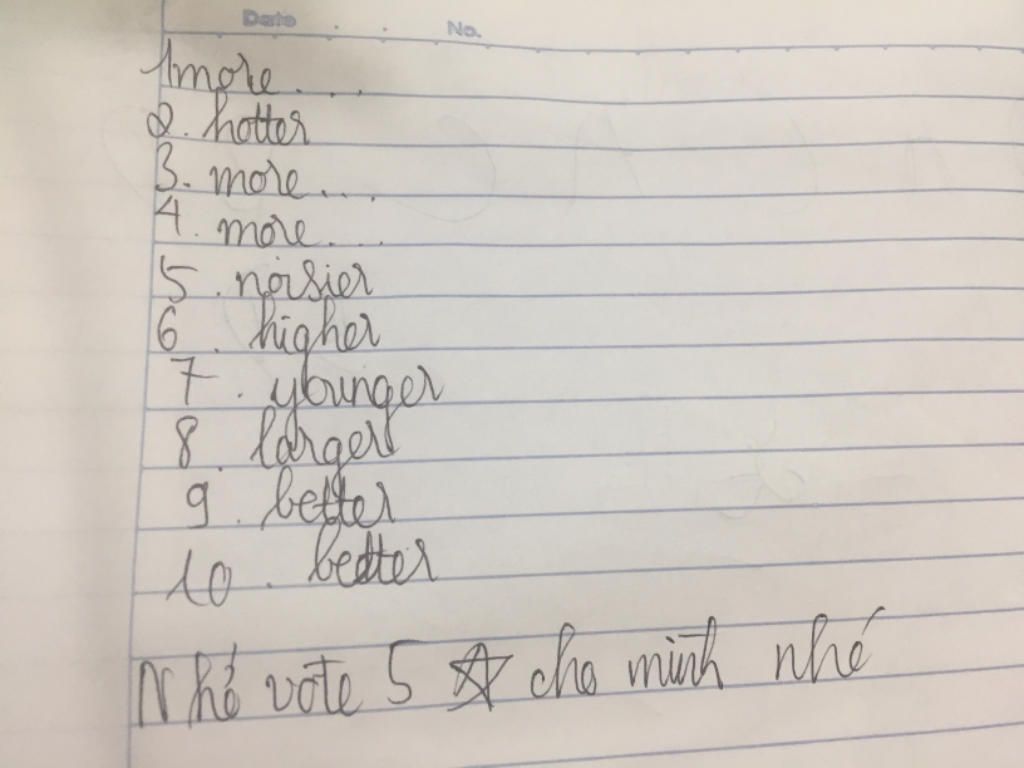 Date No.
1 more....
2. hotter
3. more...
4. more....
5. noisier
6. higher
7. younger
8. larger
9. better
10. better
Nhé vote 5 ☆ cho mình nhé